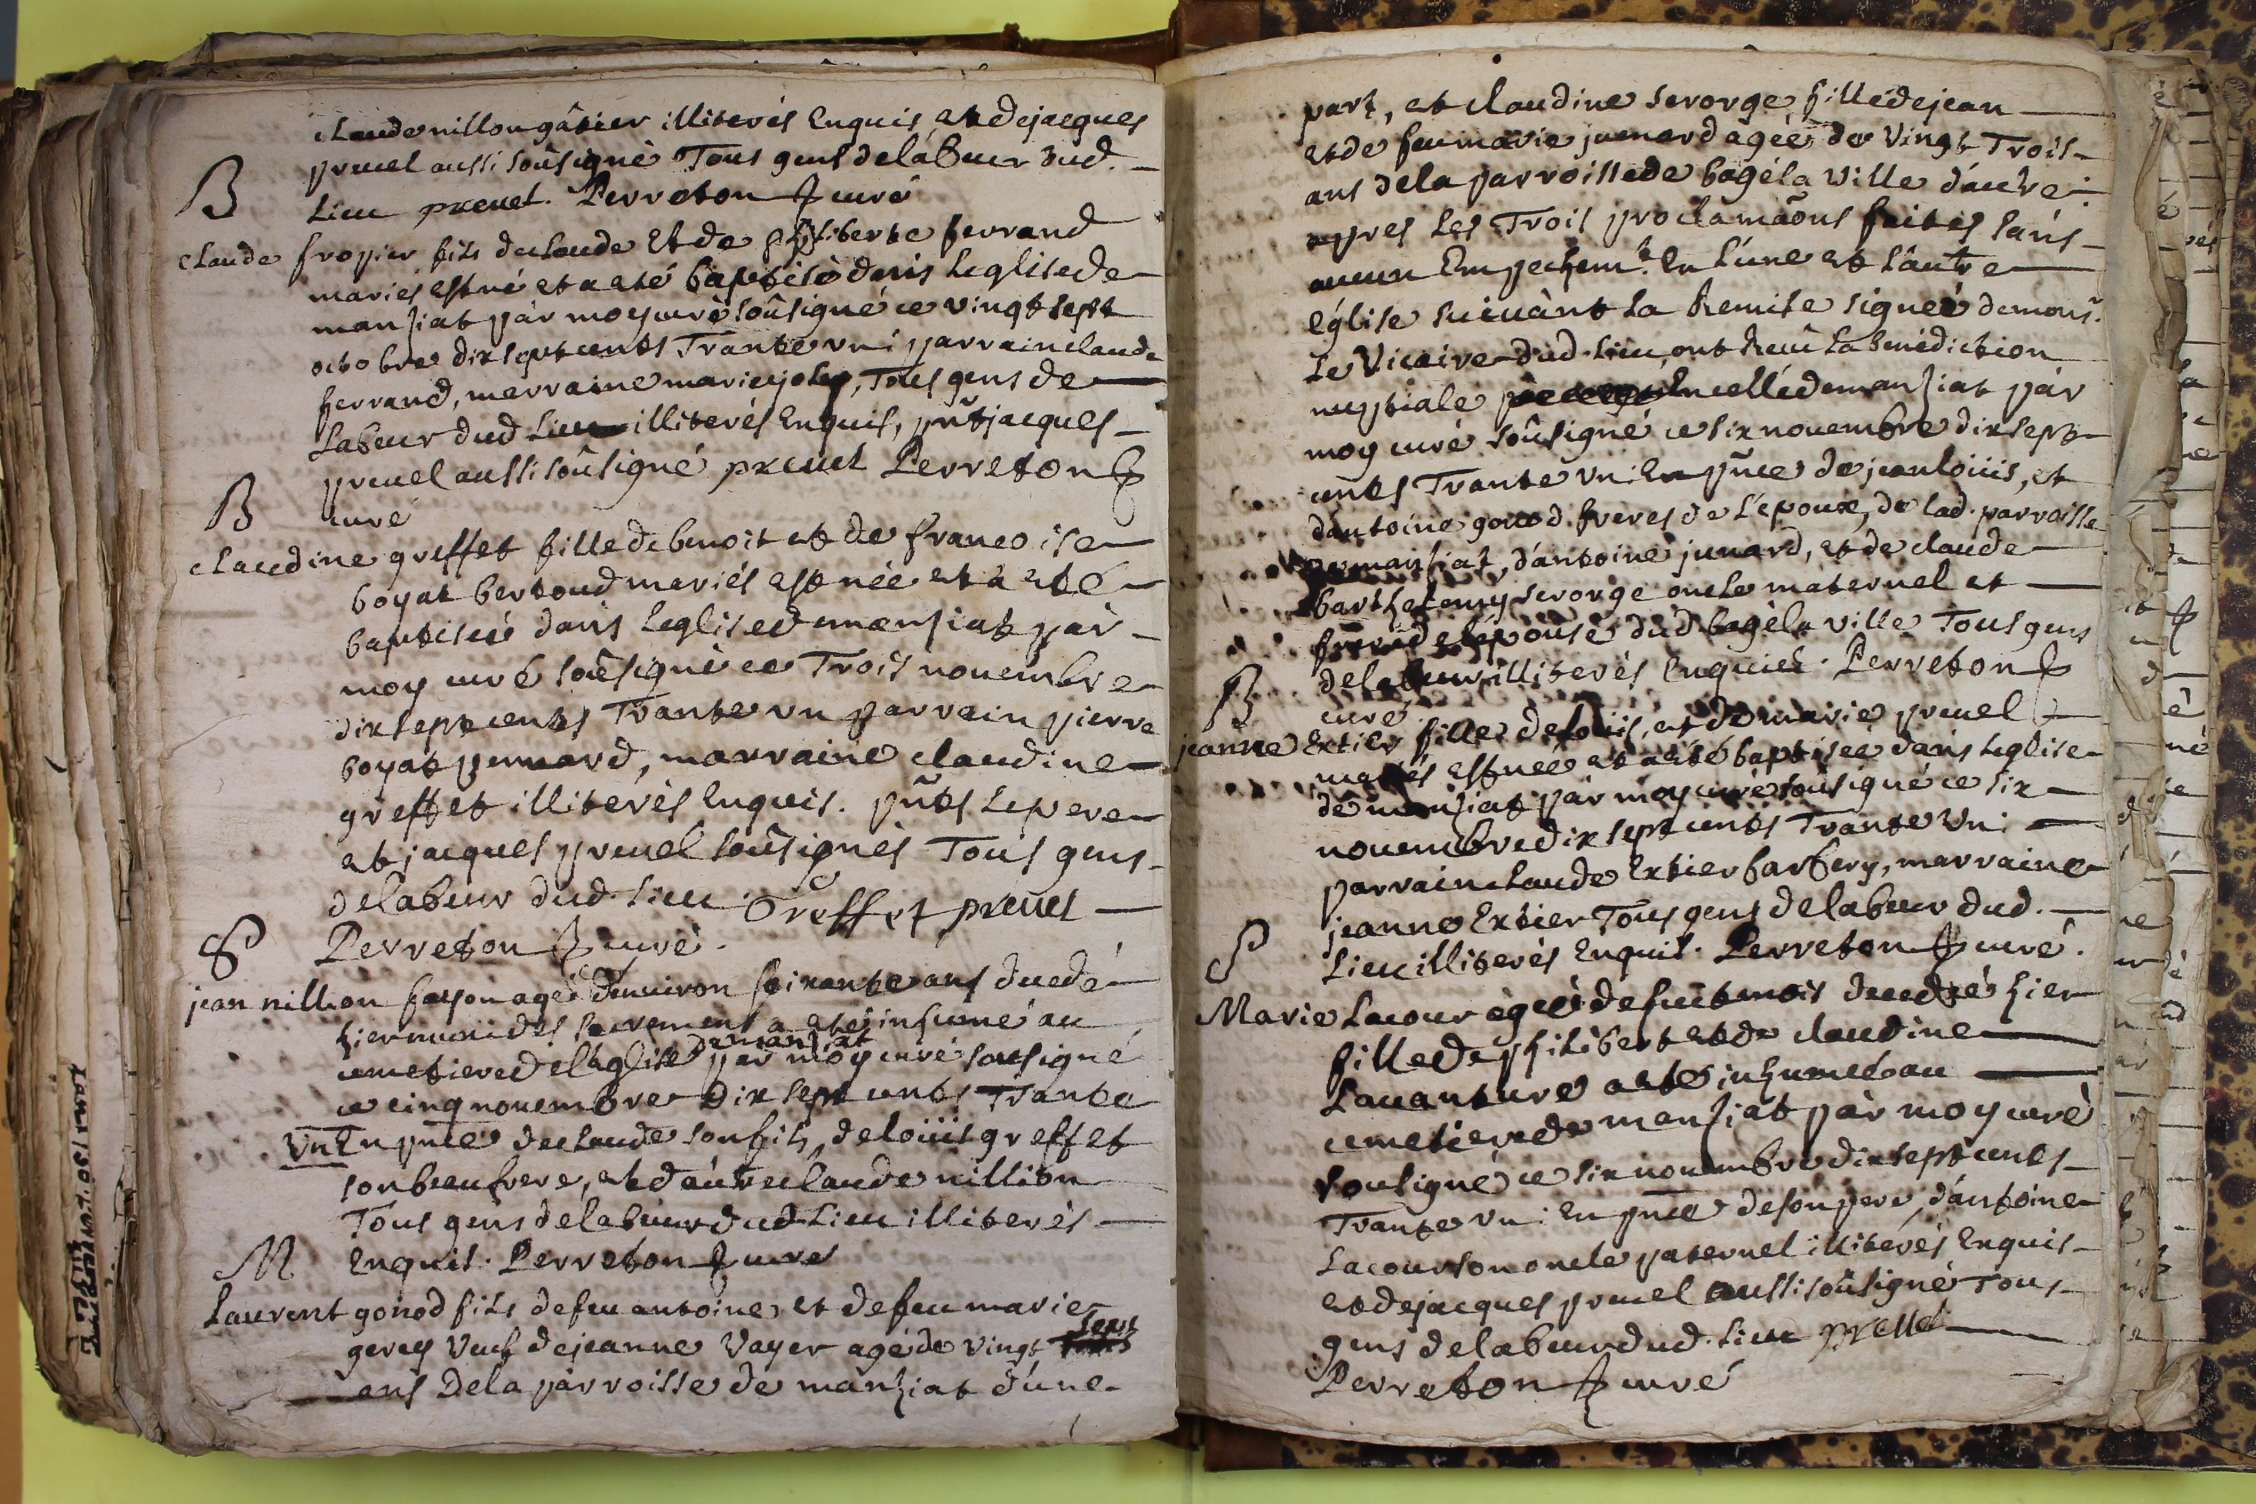 claude nillon gâtier illiterés Enquis et de jacques
preuel aussi soûsigné Tous gens de labeur dud.
Lieu preuel. Perreton curé
B
claude fropier fils de claude Et de philiberte ferrand
mariés est né et a eté baptisé dans Leglise de
manziat par moy curé soûsigné ce vingt sept
octobre dix sept cents Trante un: parrain claude
ferrand, marraine marie joly, Tous gens de
Labeur dud Lieu illiterés Enquis, pñt jacques
preuel aussi soûsigné preuel Perreton
curé
B
claudine greffet fille de benoit et de francoise
boyat bertoud mariés est née et a eté
baptiseé dans Leglise de manziat par
moy curé soûsigné ce Trois nouembre
dix sept cents Trante un parrain pierre
boyat penard, marraine claudine
greffet illiterés Enquis. pñts Le pere
et jacques preuel soûsignés Tous gens
de labeur dud. Lieu. Greffet preuel
Perreton curé.
S
jean nillion fayon agé d'enuiron soixante ans decedé
hier muni des sacrements a eté inhumé au
cemetiere de l'église de manziat par moy curé sousigné
ce cinq nouembre dix sept cents Trante
un En pñce de claude son fils, de loüis greffet
son beaufrere, et d'autre claude nillion
Tous gens de labeur dud Lieu illiterés
Enquis. Perreton curé
M
Laurent gonod fils de feu antoine, et de feu marie
gerey veuf de jeanne Vayer agé de vingt sept
ans De la parroisse de manziat d'une
part, et claudine serorge fille de jean
et de feu marie junard agée de vingt Trois
ans de la parroisse de bagé la ville d'autre:
apres Les Trois proclamaõns faites sans
aucun Empechemt. En l'une et l'autre
église suiuant La Remise signeé de monsr.
Le Vicaire dud. Lieu, ont Receu La benediction
nuptiale En celle de manziat par
moy curé soûsigné ce six nouembre dix sept
cents Trante un: En pñce de jean loüis, et
d'antoine gonod freres de L'epoux, de lad. parroisse
de manziat, d'antoine junard, et de claude
barthelemy serorge oncle maternel et
frere de l'épouse dud bagé la ville Tous gens
de labeur illiterés Enquis. Perreton
curé.
B
jeanne Extier fille de loüis, et de marie preuel
mariés est neé et a eté baptiseé dans Leglise
de manziat par moy curé soûsigné ce six
nouembre dix sept cents Trante Un:
parrain claude Extier barbery, marraine
jeanne Extier Tous gens de labeur dud.
Lieu illiterés Enquis. Perreton curé.
S
Marie Lacour ageé de huit mois decedeé hier
fille de philibert et de claudine
Lauanture a eté inhumeé au
cemetiere de manziat par moy curé
sousigné ce six nouembre dix sept cents
Trante un: En pñce de son pere, d'antoine
Lacour son oncle paternel illiterés Enquis
et de jacques preuel aussi soûsigné Tous
gens de labeur dud. Lieu preuel
Perreton curé